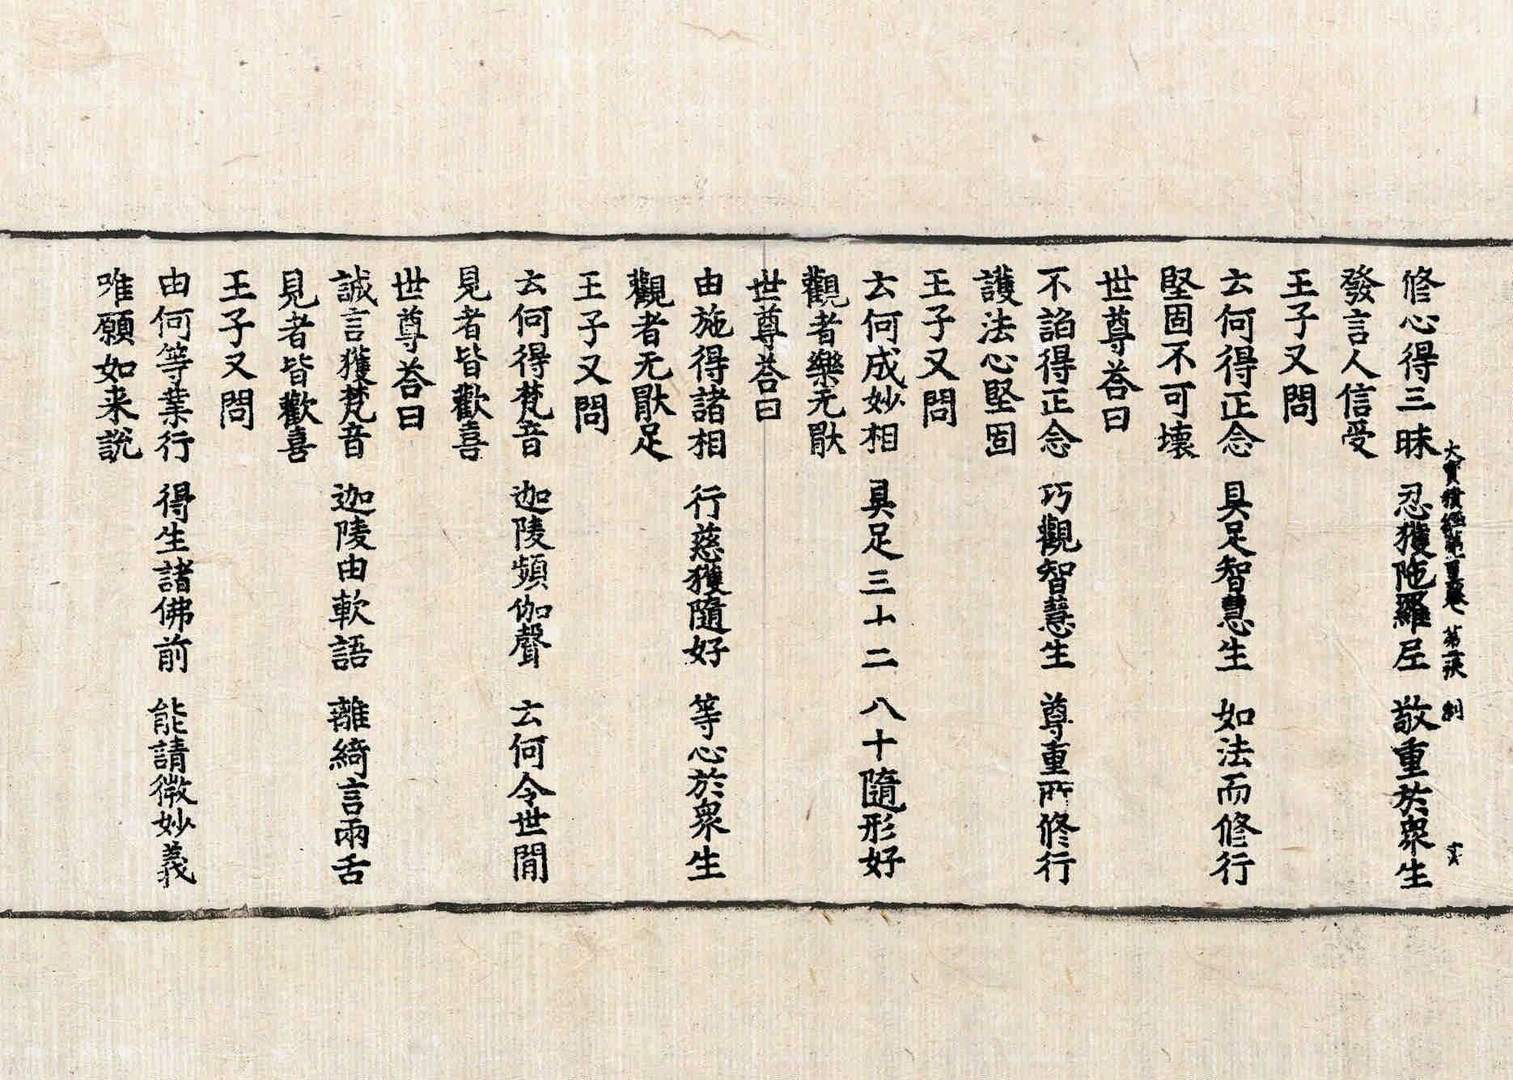 修心得三昧　忍獲陁羅尼　敬重於衆生
發言人信受
王子又問
云何得正念　具足智慧生　如法而修行
堅固不可壞
世尊荅曰
不諂得正念　巧觀智慧生　尊重所修行
護法心堅固
王子又問
云何成妙相　具足三十二　八十隨形好
觀者樂无猒
世尊荅曰
由施得諸相　行慈獲隨好　等心於衆生
觀者无猒足
王子又問
云何得梵音　迦陵頻伽聲　云何令世閒
見者皆歡喜
世尊荅曰
誠言獲梵音　迦陵由軟語　離綺言兩舌
見者皆歡喜
王子又問
由何等業行　得生諸佛前　能請微妙義
唯願如来說